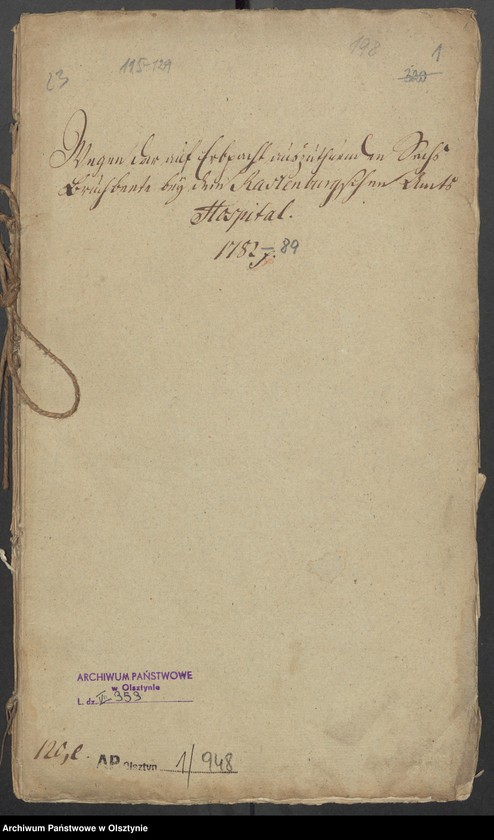 198
1
23
125-129
Wegen der auf Erbpacht auszuthuenden Sechs
bey dem Rastenburgschen Amts
Hospital.
1783-89
ARCHIWUM PAŃSTWOWE
w Olsztynie
L. dz. VII-353
AP Olsztyn 1/948
Archiwum Państwowe w Olsztynie